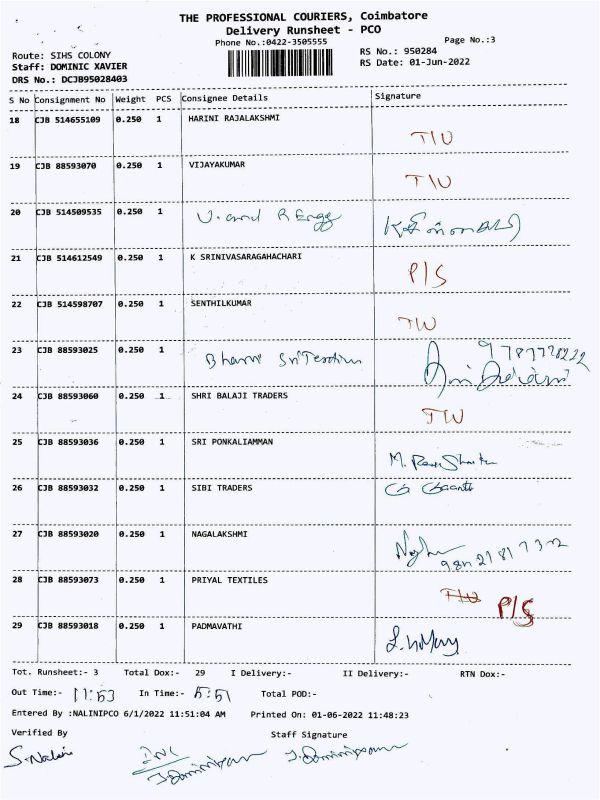 THE PROFESSIONAL COURIERS, Coimbatore
Delivery Runsheet - PCO
Phone No.:0422-3505555 Page No.:3
Route: SIHS COLONY RS No.: 950284
Staff: DOMINIC XAVIER RS Date: 01-Jun-2022
DRS No.: DCJB95028403
S No Consignment No Weight PCS Consignee Details Signature
18 CJB 514655109 0.250 1 HARINI RAJALAKSHMI T/U
19 CJB 88593070 0.250 1 VIJAYAKUMAR T/U
20 CJB 514509535 0.250 1 U. and R Engg
21 CJB 514612549 0.250 1 K SRINIVASARAGAHACHARI P/S
22 CJB 514598707 0.250 1 SENTHILKUMAR T/U
23 CJB 88593025 0.250 1 Sri 9787778222
24 CJB 88593060 0.250 1 SHRI BALAJI TRADERS T/U
25 CJB 88593036 0.250 1 SRI PONKALIAMMAN M.
26 CJB 88593032 0.250 1 SIBI TRADERS
27 CJB 88593020 0.250 1 NAGALAKSHMI
28 CJB 88593073 0.250 1 PRIYAL TEXTILES T/U P/S
29 CJB 88593018 0.250 1 PADMAVATHI
Tot. Runsheet:- 3 Total Dox:- 29 I Delivery:- II Delivery:- RTN Dox:-
Out Time:- 11:53 In Time:- 5:51 Total POD:-
Entered By :NALINIPCO 6/1/2022 11:51:04 AM Printed On: 01-06-2022 11:48:23
Verified By Staff Signature
S.Nalini